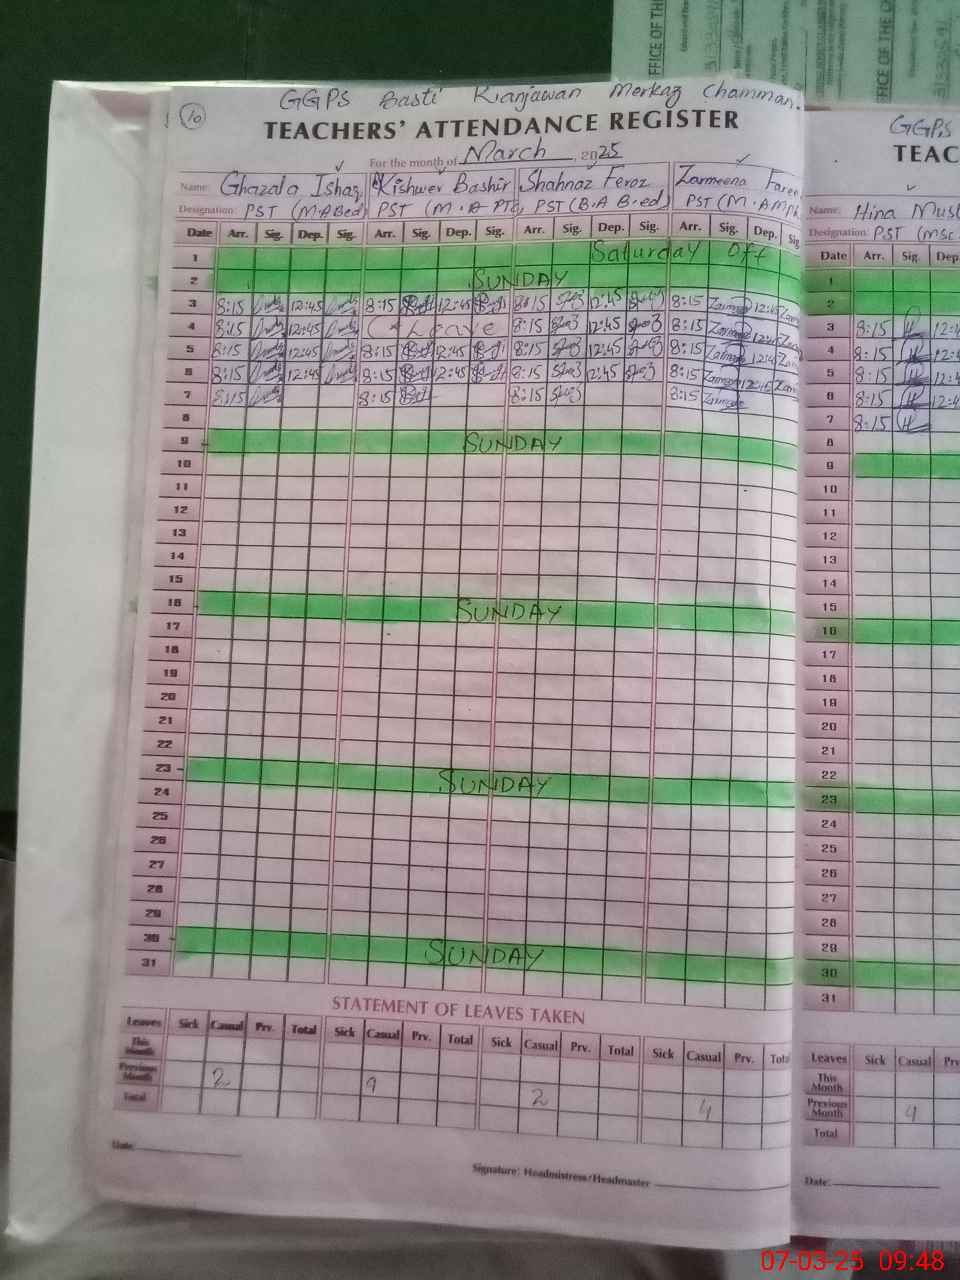 GGPS Basti Kanjawan Merkaz Chamman.
10
TEACHERS' ATTENDANCE REGISTER
For the month of March, 2025
Name: Ghazala Ishaq Kishwer Bashir Shahnaz Feroz Zarmeena
Designation: PST (M.A Bed) PST (M.A PTC) PST (B.A B.ed) PST (M.A M
Date Arr. Sig. Dep. Sig. Arr. Sig. Dep. Sig. Arr. Sig. Dep. Sig. Arr. Sig. Dep. Sig
1 Saturday Off
2 SUNDAY
3 8:15 12:45 8:15 12:45 8:15 12:45 8:15 12:45
4 8:15 12:45 C-Leave 8:15 12:45 8:15 12:45
5 8:15 12:45 8:15 12:45 8:15 12:45 8:15 12:45
6 8:15 12:45 8:15 12:45 8:15 12:45 8:15 12:45
7 8:15 8:15 8:15 8:15
8
9 SUNDAY
10
11
12
13
14
15
16 SUNDAY
17
18
19
20
21
22
23 SUNDAY
24
25
26
27
28
29
30 SUNDAY
31
STATEMENT OF LEAVES TAKEN
Leaves Sick Casual Prv. Total Sick Casual Prv. Total Sick Casual Prv. Total Sick Casual Prv. Total
This Month
Previous Month 2 9 2 4
Total
Date:
Signature: Headmistress/Headmaster
GGPS
TEAC
Name: Hina Must
Designation: PST (MSC
Date Arr. Sig. Dep
1
2
3 8:15 12:4
4 8:15 12:4
5 8:15 12:4
6 8:15 12:4
7 8:15
8
9
10
11
12
13
14
15
16
17
18
19
20
21
22
23
24
25
26
27
28
29
30
31
Leaves Sick Casual Prv
This Month
Previous Month 4
Total
Date:
FFICE OF THE
FFICE OF THE D
07-03-25 09:48